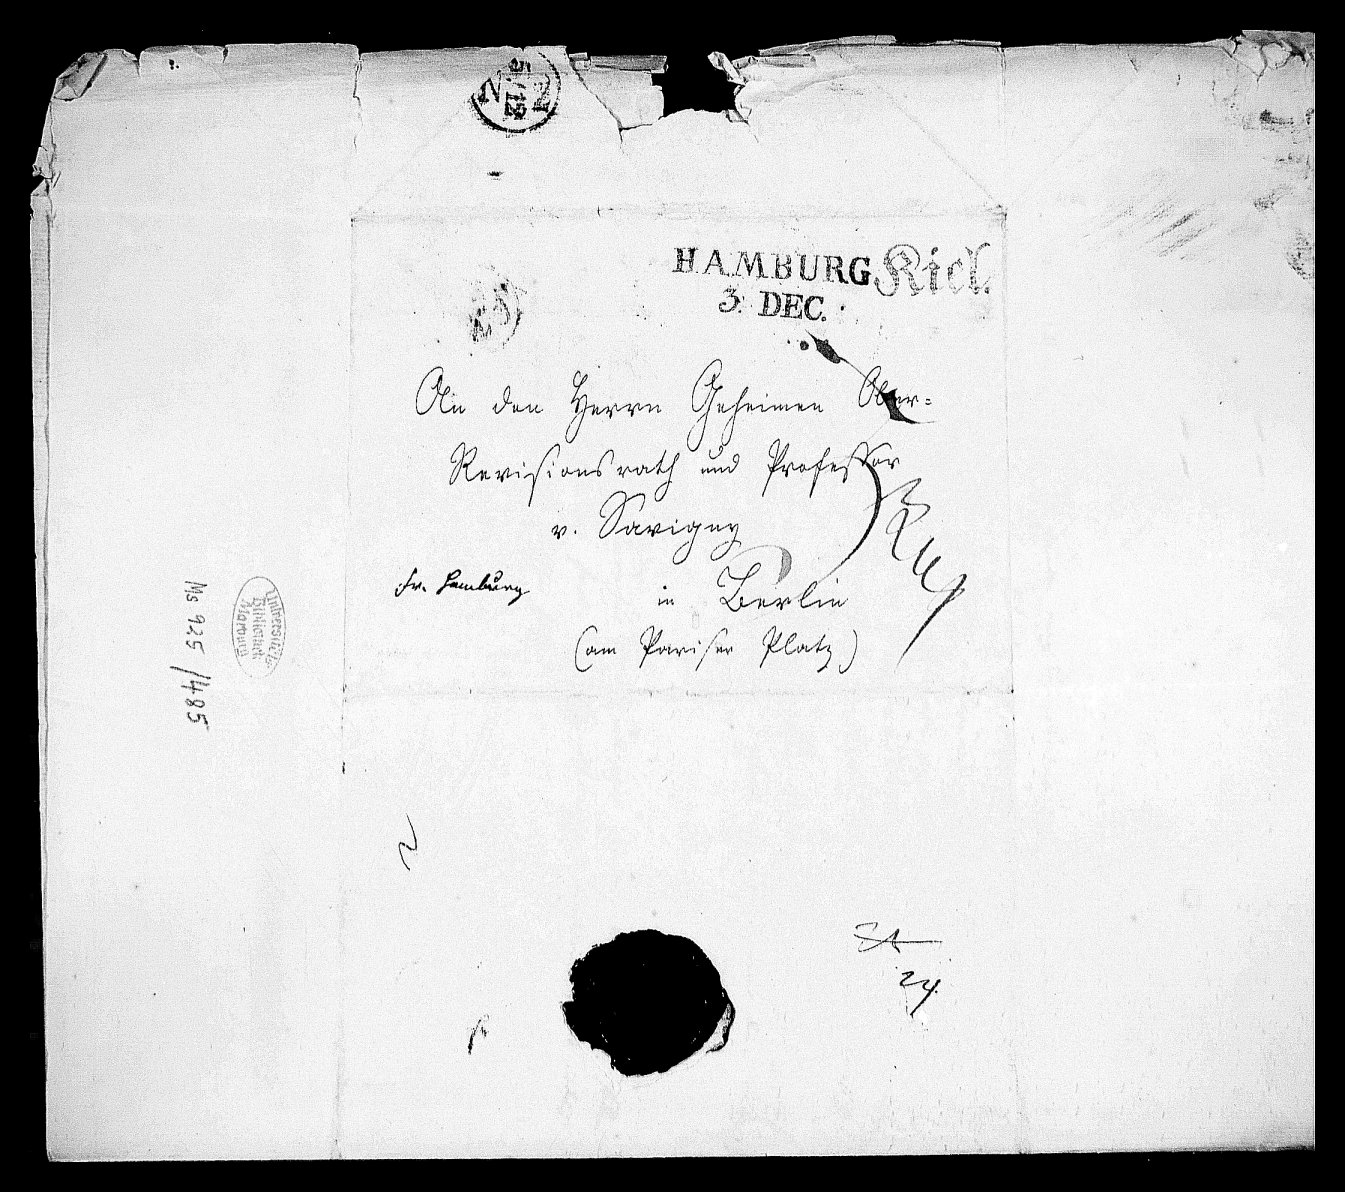 N 5/12 2
HAMBURG Kiel.
3. DEC.
An den Herrn Geheimen Ober-
Revisionsrath und Professor
v. Savigny
fr. Hamburg
in Berlin
(am Pariser Platz)
Ms 925/485
Universitäts-
Bibliothek
Marburg
24.